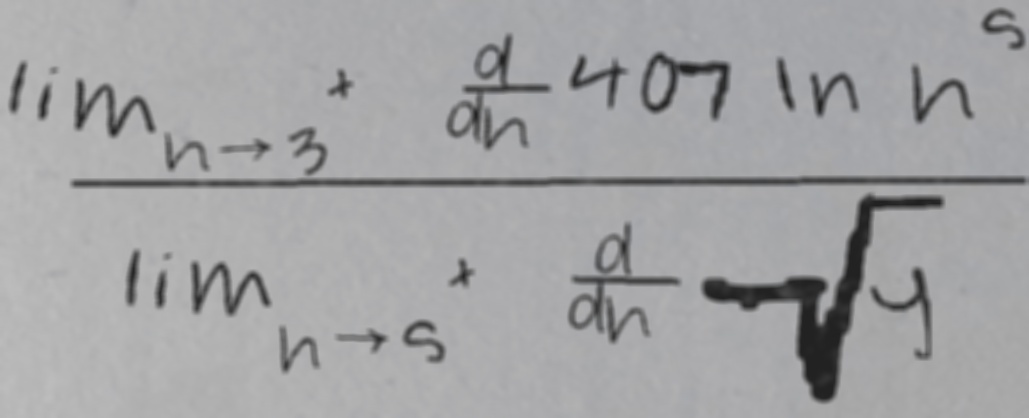 \frac{\lim_{n \to 3^+} \frac{d}{dn} 407 \ln n^s}{\lim_{n \to s^+} \frac{d}{dn} -\sqrt{y}}